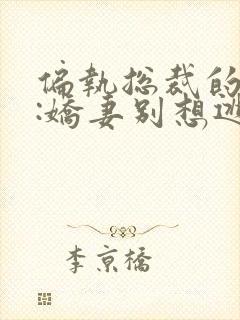 偏執総裁的
:嬌妻別想逃
李京橋